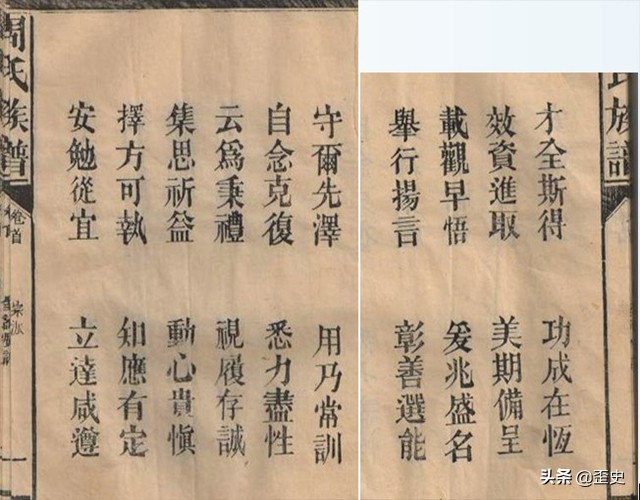 氏族譜
才全斯得 功成在恆
效資進取 美期備呈
載觀早悟 爰兆盛名
舉行揚言 彰善選能
守爾先澤 用乃常訓
自念克復 悉力盡性
云爲秉禮 視履存誠
集思祈益 動心貴愼
擇方可執 知應有定
安勉從宜 立達咸遵
周氏族譜
卷首
宗派
一
头条 @歪史